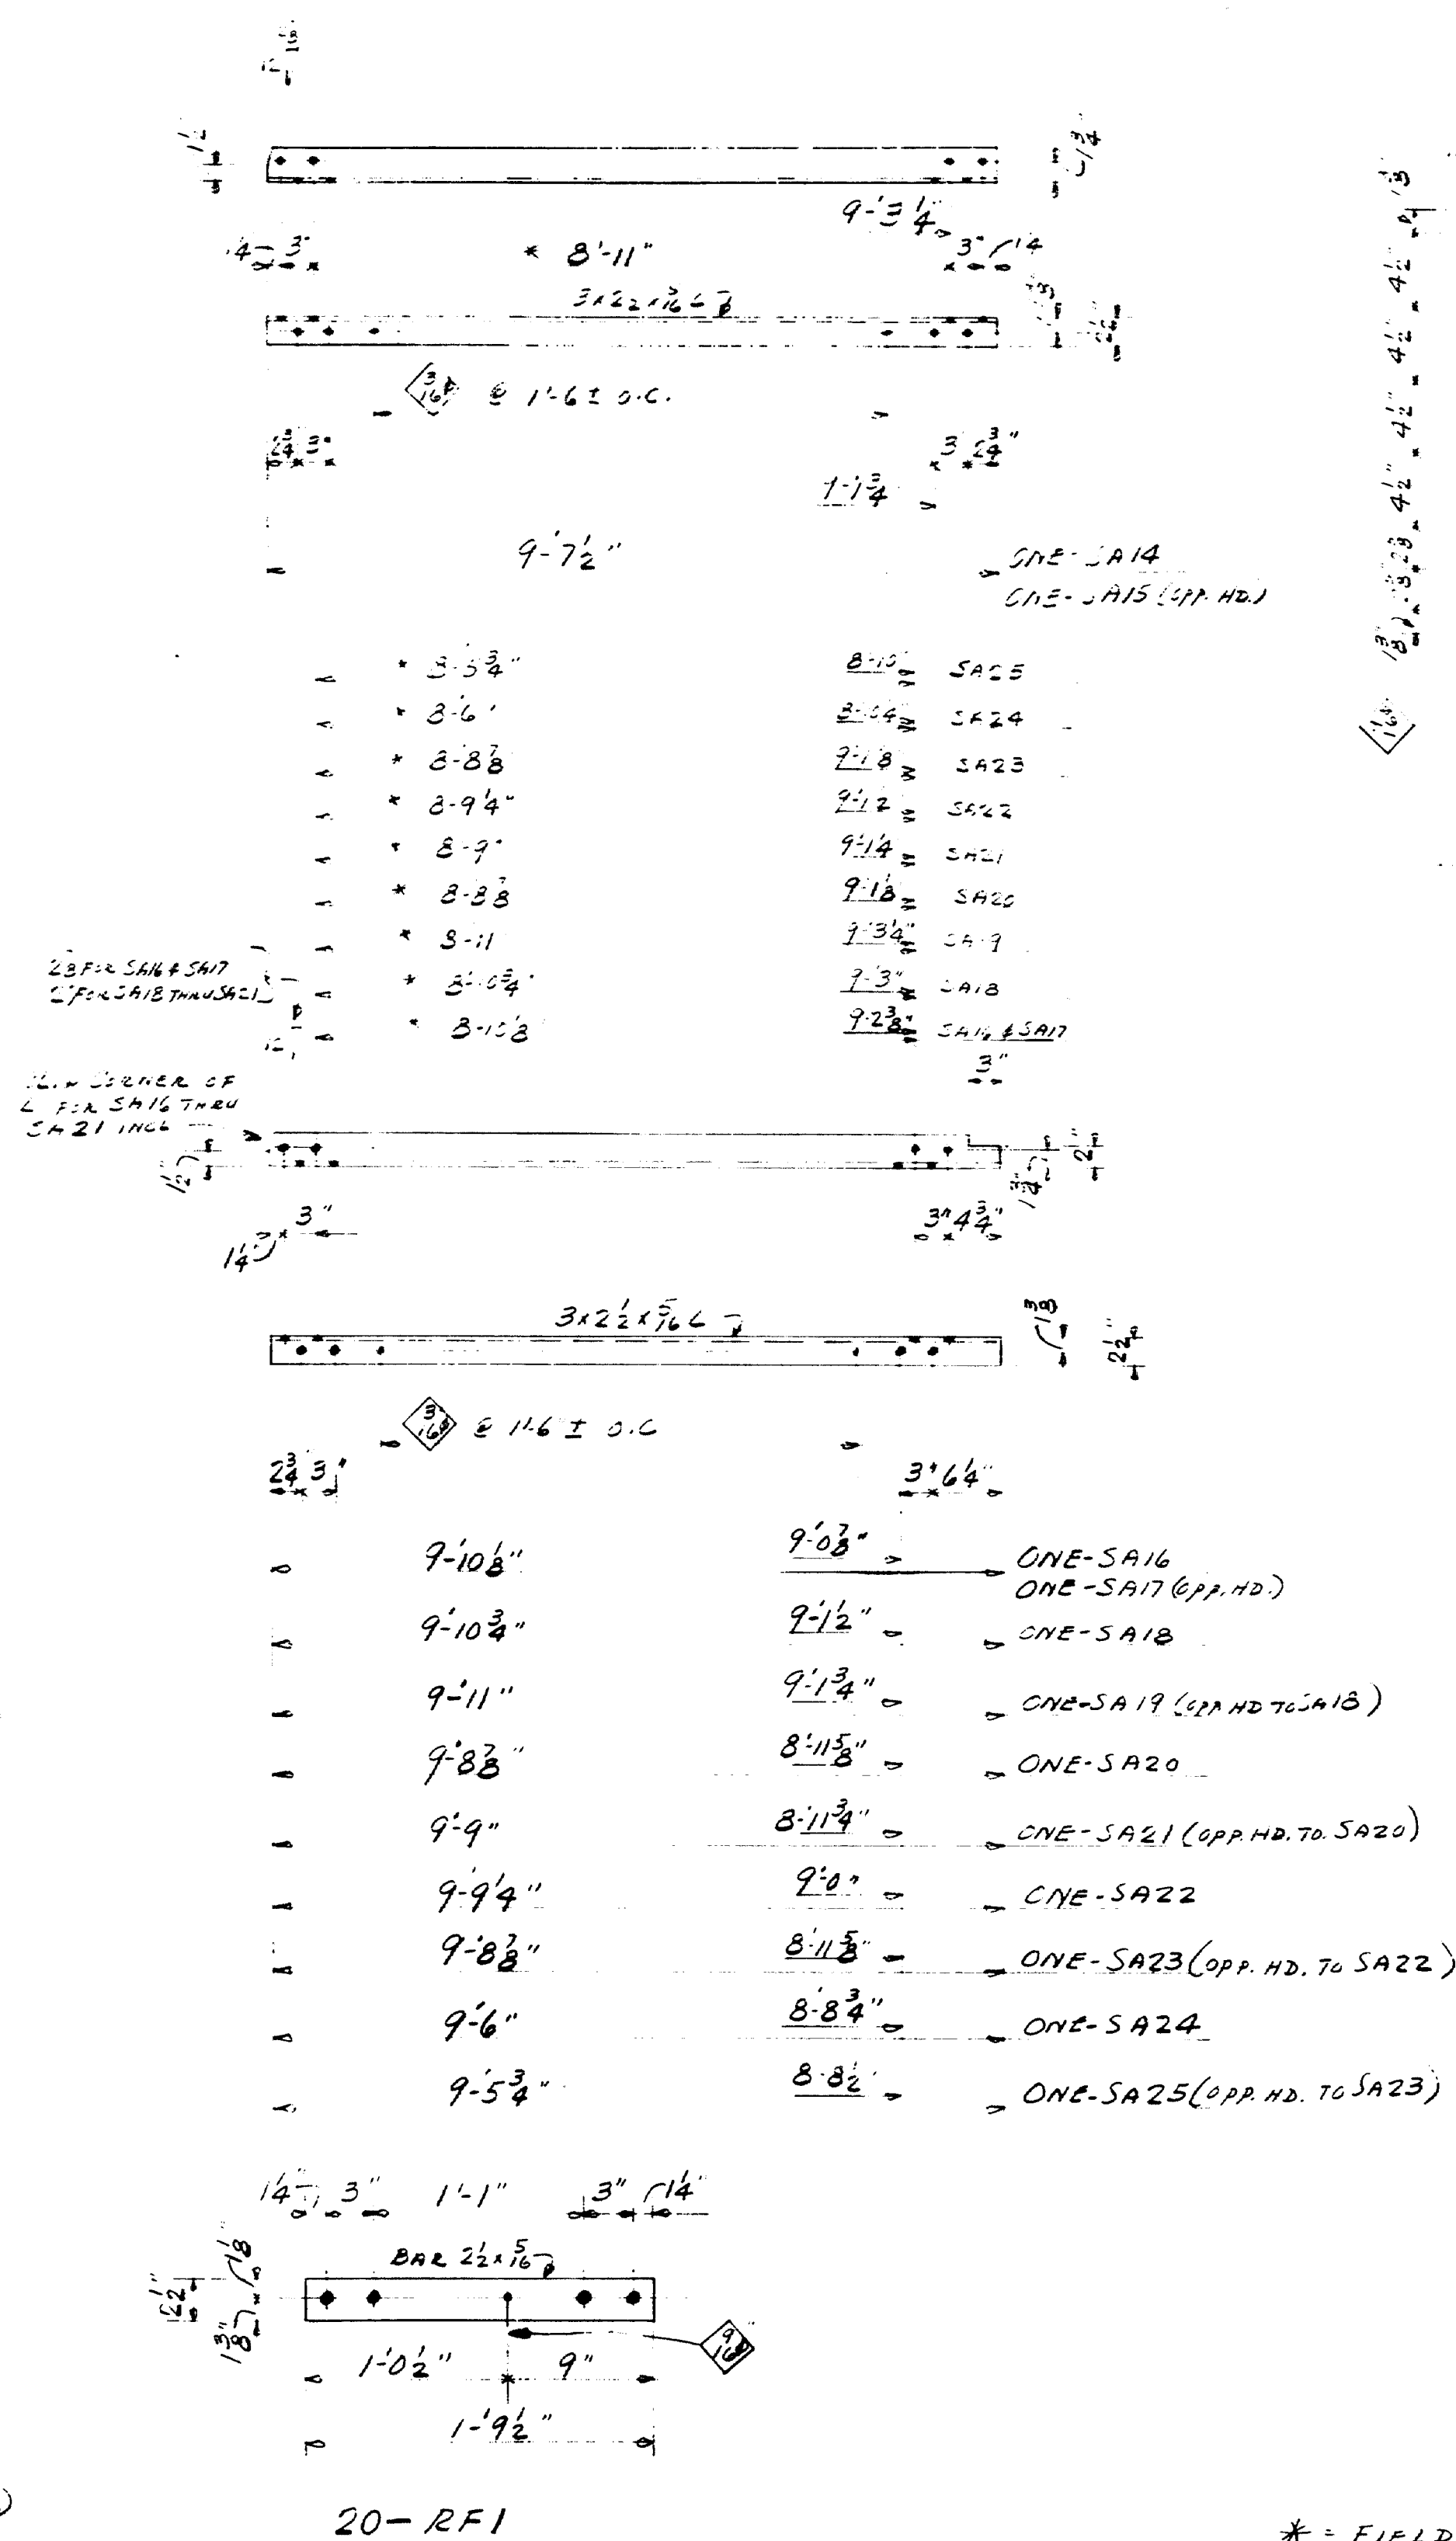 1 1/2
1 3/4
9-3 1/4"
1 1/4 3"
* 8'-11"
3" 1 1/4
@ 1'-6 ± O.C.
2 3/4 3"
3 2 3/4"
9'-7 1/2"
ONE-SA14
ONE-SA15 (OPP. HD.)
4 1/2" 4 1/2" 4 1/2" 4 1/2"
1 3/8"
* 8-5 3/4" 8-10 SA25
* 8-6" SA24
* 8-8 7/8 9-1 7/8 SA23
* 8-9 1/4" SA22
* 8-9" SA21
* 8-8 7/8 SA20
* 8-11 9-3 1/4" SA19
* 8'-10 3/4" 9-3" SA18
* 8-10 1/8 9-2 3/8" SA16 & SA17
FOR SA16 & SA17
FOR SA18 THRU SA21
3"
CORNER OF
L FOR SA16 THRU
SA21 INCL
1 1/2
1 3/4 2"
3" 3" 4 3/4"
1 1/4
3x2 1/2 x 5/16 L
1 3/8
2 1/2"
3/16 @ 1'-6" ± O.C
2 3/4 3"
3" 6 1/4"
9'-10 1/8" 9'-0 7/8" ONE-SA16
ONE-SA17 (OPP. HD.)
9'-10 3/4" 9'-1 1/2" ONE-SA18
9'-11" 9'-1 3/4" ONE-SA19 (OPP HD TO SA18)
9'-8 7/8" 8'-11 5/8" ONE-SA20
9'-9" 8'-11 3/4" ONE-SA21 (OPP. HD. TO. SA20)
9-9 1/4" 9'-0" ONE-SA22
9-'8 7/8" 8'-11 5/8" ONE-SA23 (OPP. HD. TO SA22)
9'-6" 8'-8 3/4" ONE-SA24
9'-5 3/4" 8-8 1/2 ONE-SA25 (OPP. HD. TO SA23)
1 1/4" 3" 1'-1" 3" 1 1/4"
BAR 2 1/2 x 5/16
2 1/2"
1 1/8"
1 3/8"
9/16
1'-0 1/2" 9"
1-'9 1/2"
20-RF1
* = FIELD